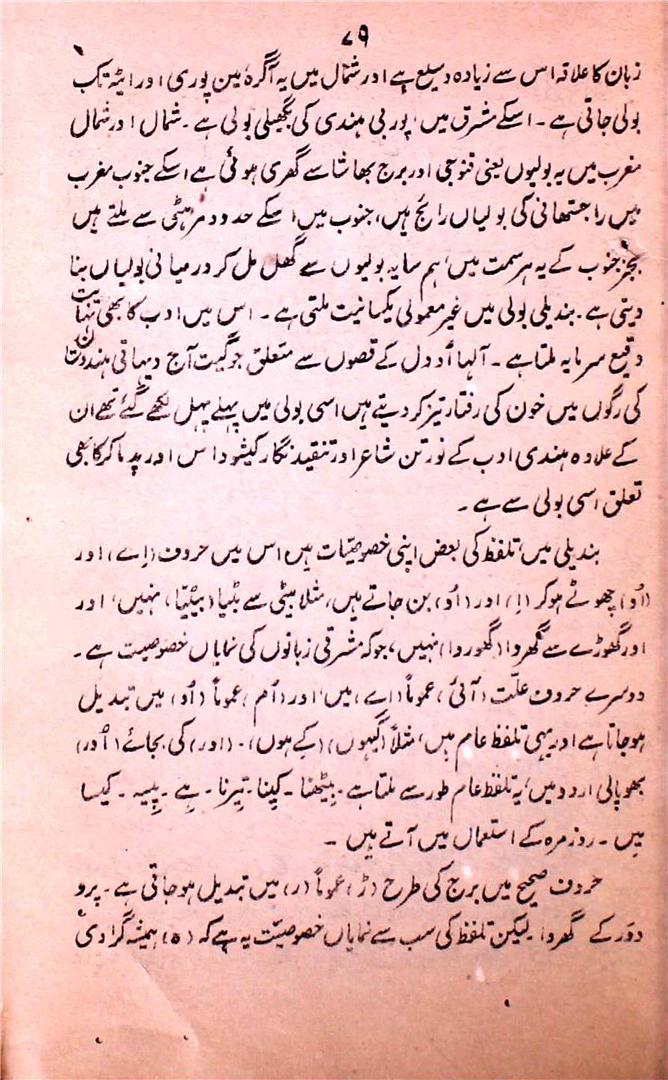 ۷۹
زبان کا علاقہ اس سے زیادہ وسیع ہے اور شمال میں یہ آگرہ مین پوری اور ایٹہ تک
بولی جاتی ہے۔ اسکے مشرق میں، پوربی ہندی کی بگھیلی بولی ہے۔ شمال اور شمال
مغرب میں یہ بولیوں یعنی قنوجی اور برج بھاشا سے گھری ہوئی ہے اسکے جنوب مغرب
میں راجستھانی کی بولیاں رائج ہیں، جنوب میں اسکے حدود مرہٹی سے ملتے ہیں
بجز جنوب کے یہ ہر سمت میں، ہم سایہ بولیوں سے گھل مل کر درمیانی بولیاں بنا
دیتی ہے۔ بندیلی بولی میں غیر معمولی یکسانیت ملتی ہے۔ اس میں ادب کا بھی نہایت
وقیع سرمایہ ملتا ہے۔ آلہا اودل کے قصوں سے متعلق جو گیت آج دیہاتی ہندوستان
کی رگوں میں خون کی رفتار تیز کر دیتے ہیں اسی بولی میں پہلے پہل لکھے گئے تھے ان
کے علاوہ ہندی ادب کے نورتن شاعر اور تنقید نگار کیشو داس اور پدماکر کا بھی
تعلق اسی بولی سے ہے۔
بندیلی میں تلفظ کی بعض اپنی خصوصیات ہیں اس میں حروف (اے) اور
(او) چھوٹے ہو کر (اِ) اور (اُو) بن جاتے ہیں، مثلاً بیٹی سے بٹیا (بیٹیا، نہیں، اور
اور گھوڑے سے گھروا (گھوروا) نہیں، جو کہ مشرقی زبانوں کی نمایاں خصوصیت ہے۔
دوسرے حروف علّت (آئی، عموماً (اے، میں، اور (اَم، عموماً (اُو) میں تبدیل
ہو جاتا ہے اور یہی تلفظ عام ہیں، مثلاً (گیہوں) (کے ہوں)۔ (اور) کی بجائے (اُور)
بھوپالی اردو میں، یہ تلفظ عام طور سے ملتا ہے۔ بیٹھنا۔ کِپنا۔ تیرنا۔ ہے۔ پیسہ۔ کیسا
میں۔ روزمرہ کے استعمال میں آتے ہیں۔
حروف صحیح میں برج کی طرح (ڑ، عموماً (ر) میں تبدیل ہو جاتی ہے۔ پرو
دوَر کے گھروا۔ لیکن تلفظ کی سب سے نمایاں خصوصیّت یہ ہے کہ (ہ) ہمیشہ گرا دی